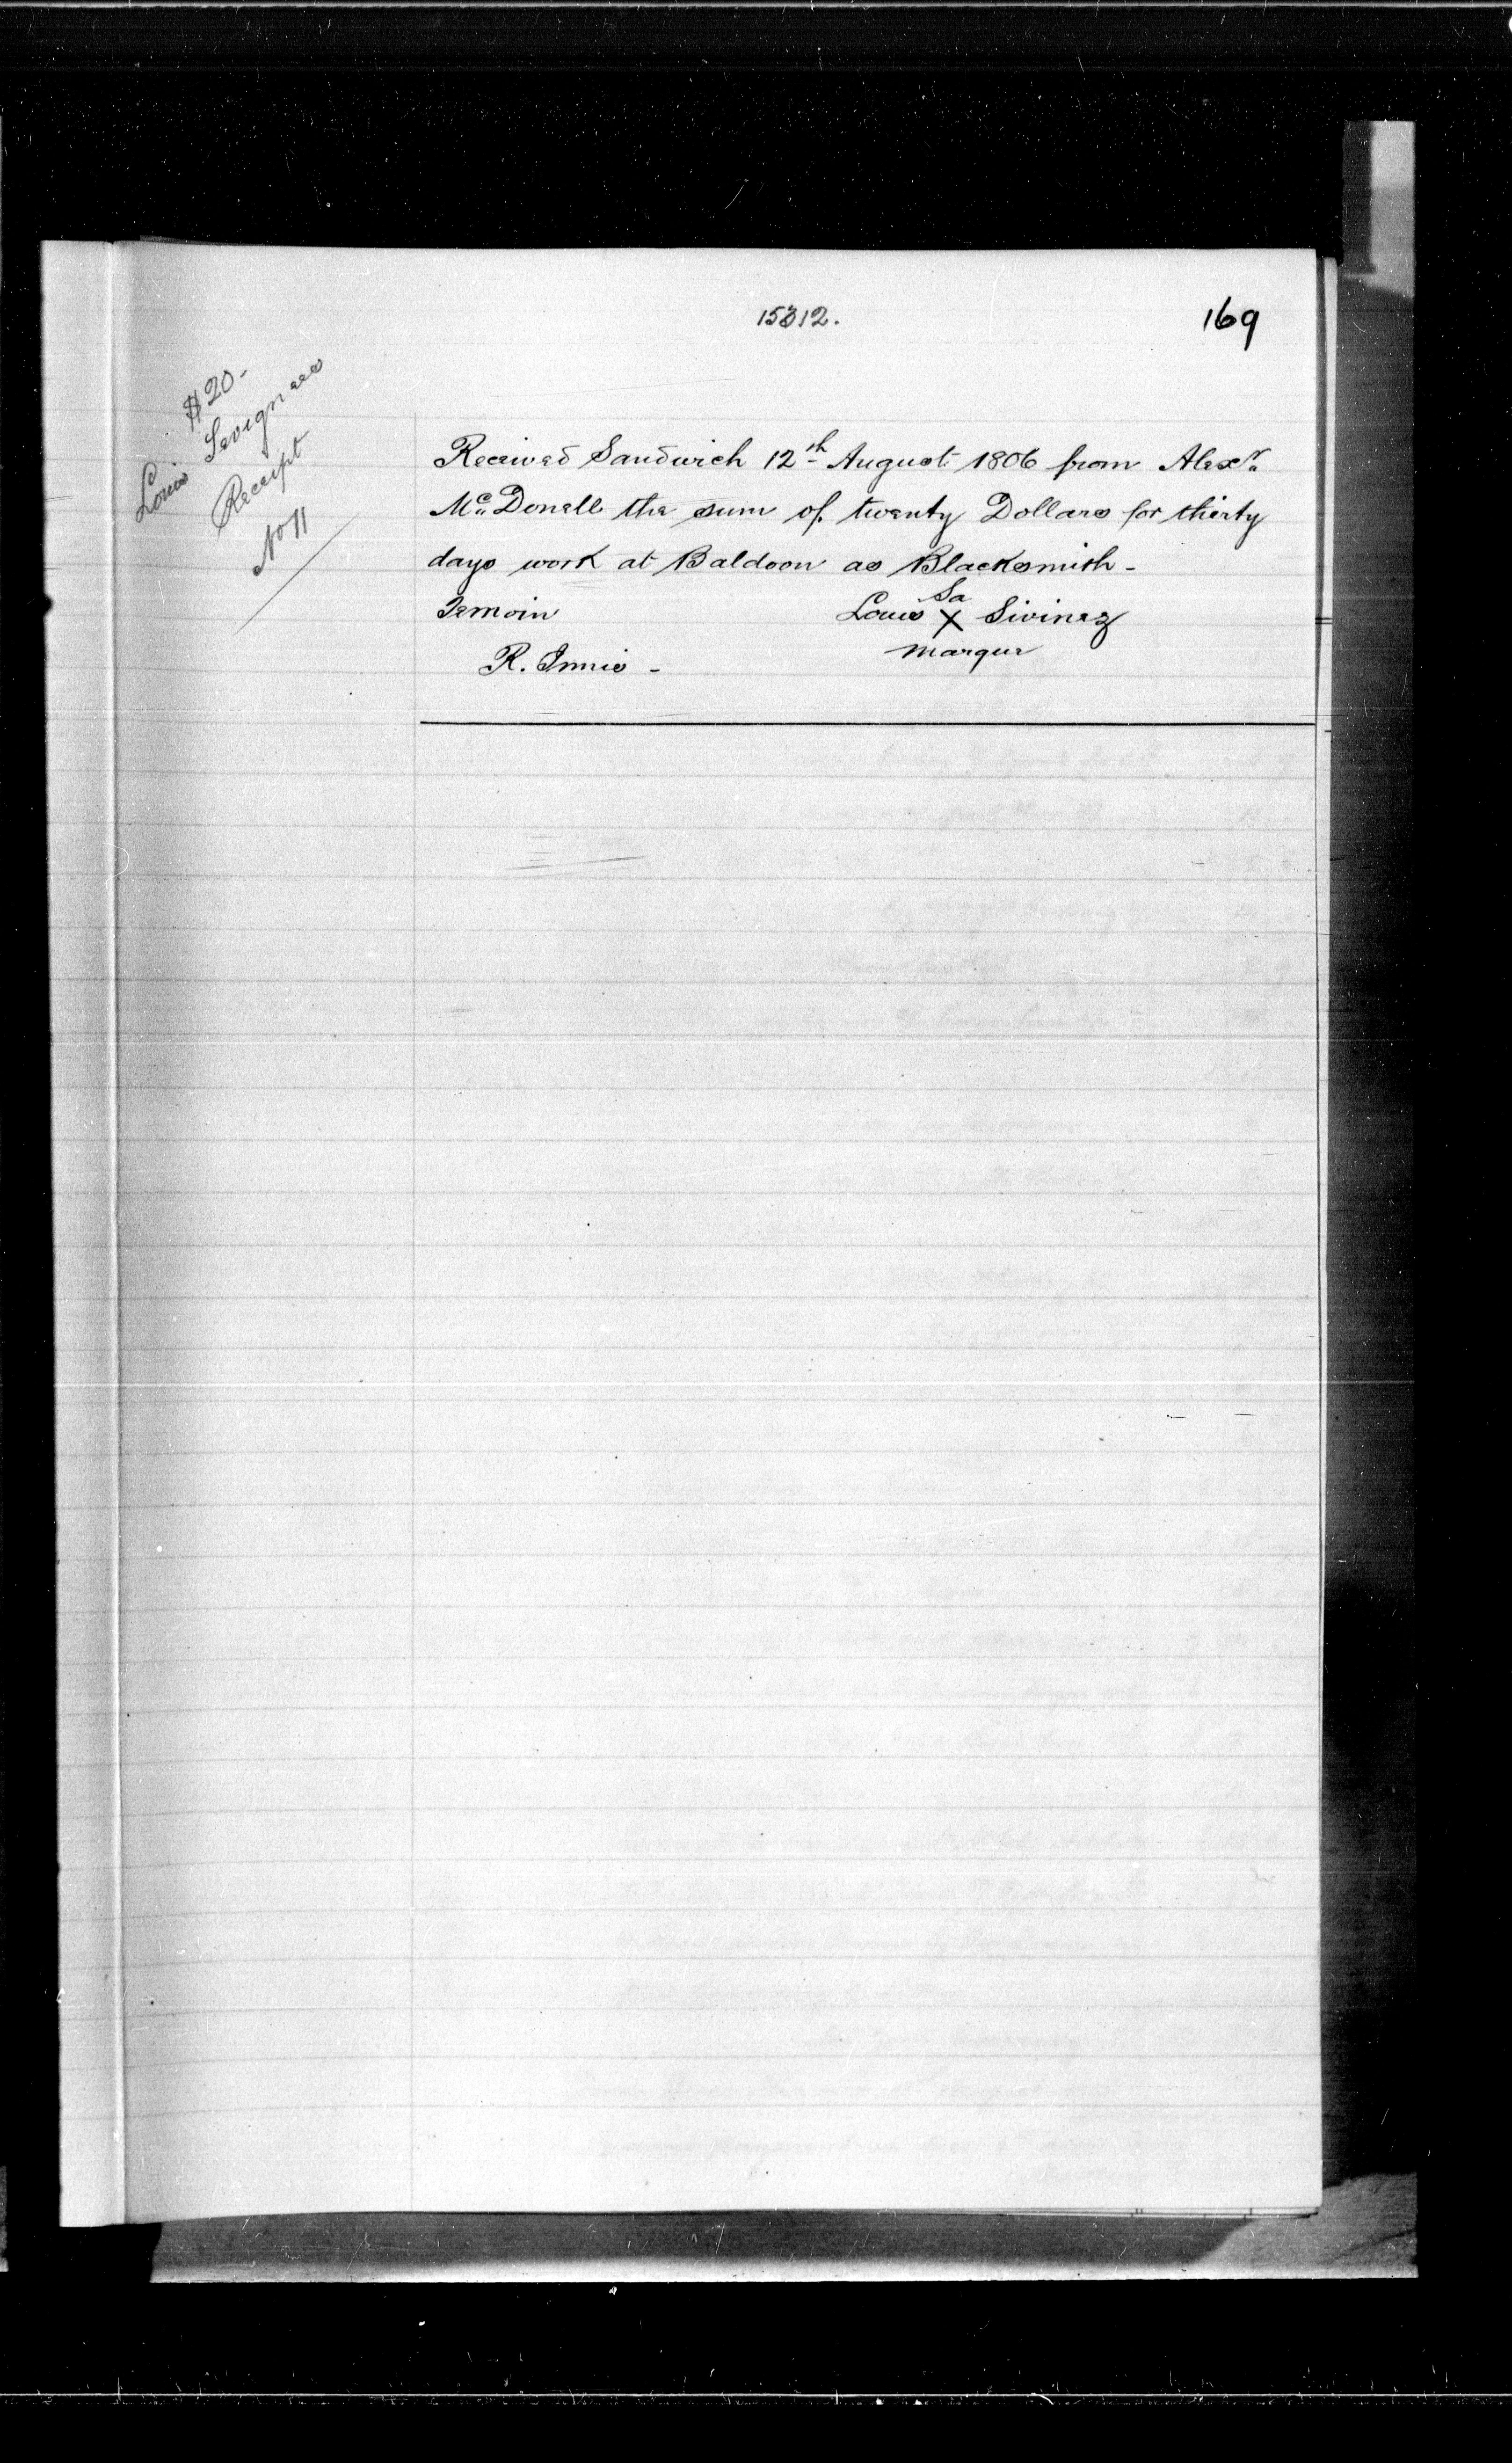 15312.
169
$20-
Louis Sevignees
Receipt
No 11
Received Sandwich 12th August 1806 from Alexr
Mc Donell the sum of twenty Dollars for thirty
days work at Baldoon as Blacksmith -
Sa
Temoin Louis X Sivinez
marque
R. Innis -